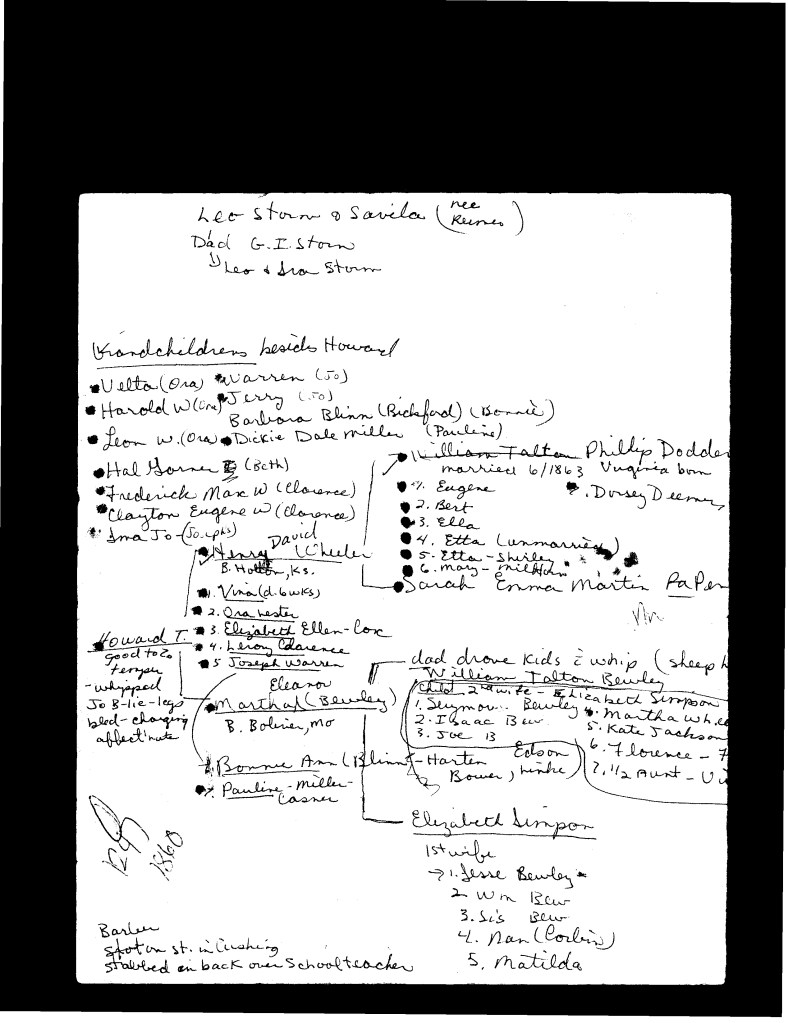 Leo Storm & Savila (nee Reimer)
Dad G. I. Storm
1) Leo & Ira Storm
Grandchildrens besides Howard
Velta (Ora) Warren (Jo)
Harold W (Ora) Jerry (Jo)
Barbara Blinn (Bickford) (Bonnie)
Leon W. (Ora) Dickie Dale Miller (Pauline)
Hal Garner (Beth)
Frederick Max W (Clarence)
Clayton Eugene W (Clarence)
Ima Jo - (Josephs)
William Talton Phillip Dodder
married 6/1863 Virginia born
1. Eugene
Dorsey Deemer,
2. Bert
3. Ella
4. Etta (unmarried)
5. Etta - Shirley
6. Mary - Milhorn
Sarah Emma Martin PaPen
David
Henry (Wheeler
B. Holton, Ks.
1. Vina (d. 6 wks)
2. Ora Nester
3. Elizabeth Ellen - Cox
4. Leroy Clarence
5 Joseph Warren
Howard T.
good to 2o
temper
- whipped
Jo B - lie - legs
bled - changing
affect'nate
Eleanor
Martha (Bewley)
B. Bolivar, Mo
Bonnie Ann (Blinn - Harten Edson
Bower, Linke)
Pauline - Miller -
Casner
dad drove kids c whip (sheep h
William Talton Bewley
Child 2nd wife - Elizabeth Simpson
1. Seymour Bewley
2. Isaac Bew
3. Joe B
4. Martha Whee
5. Kate Jackson
6. Florence - F
7. 1/2 Aunt - Vi
Elizabeth Simpson
1st wife
→ 1. Jesse Bewley
2 Wm Bew
3. Sis Bew
4. Nan (Corbin)
5. Matilda
1860
Barber
shot on st. in Cushing
stabbed in back over School teacher